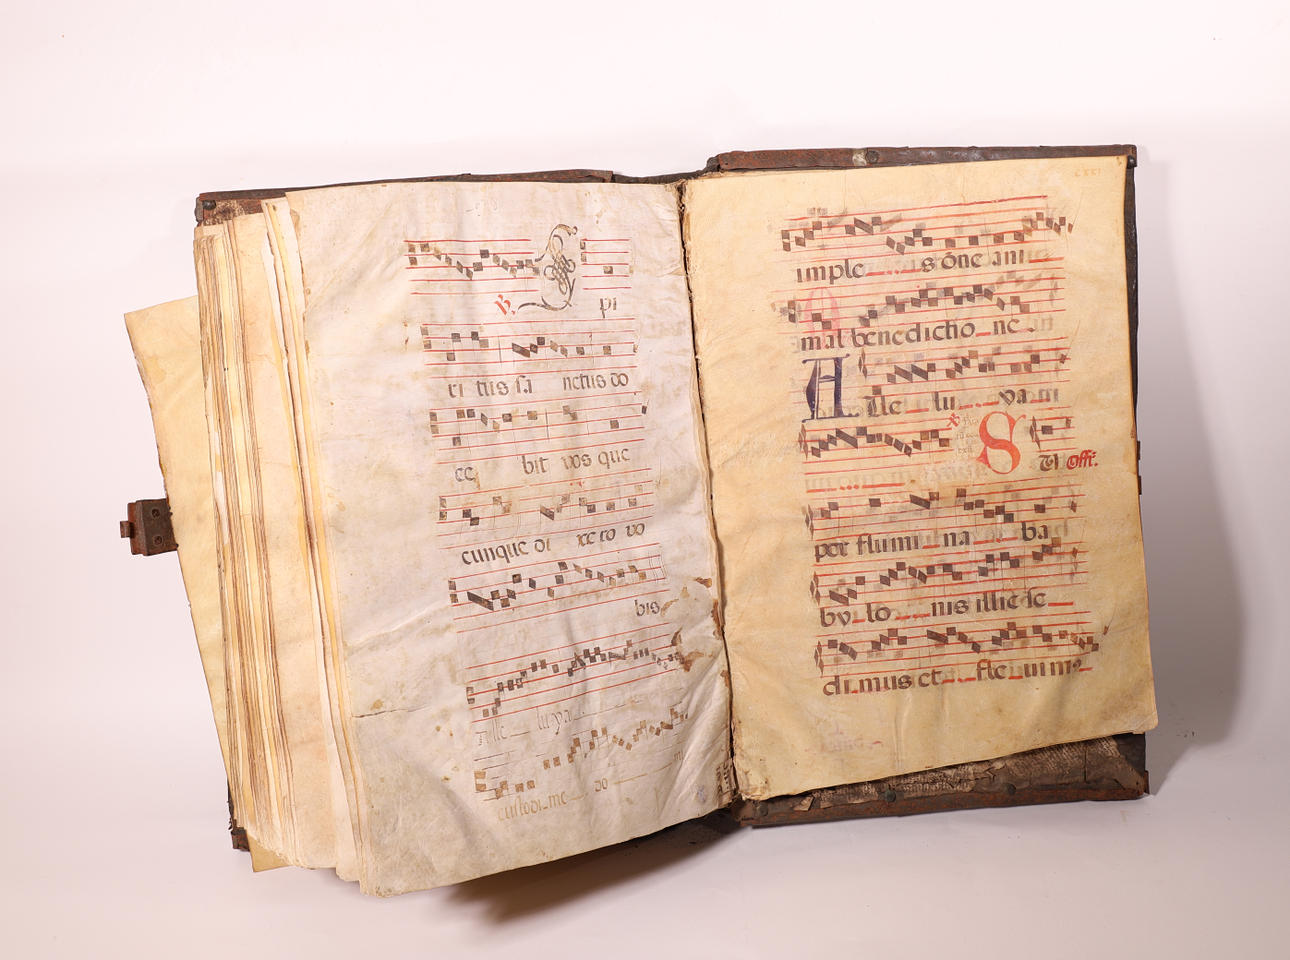 ℣. Spi
ri tus sa nctus do
ce bit vos que
cunque di xe ro vo
bis
Alle lu ya
custodi me do
imple s õne ani
mal benedictio ne
Alle lu ya
S Offr.
per flumi na ba
bv lo nis illic se
di mus et fle uim9